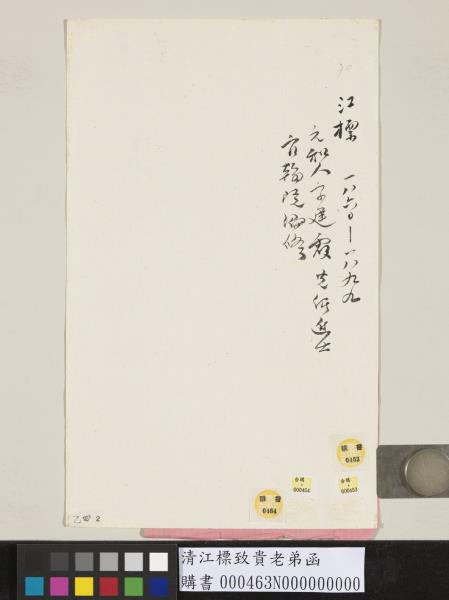 江標 一八六〇—一八九九
元和人字建霞光緒進士
官翰院編修
購書
0453
台購
000454
台購
000453
購書
0454
乙四 2
清江標致貴老弟函
購書 000463N000000000